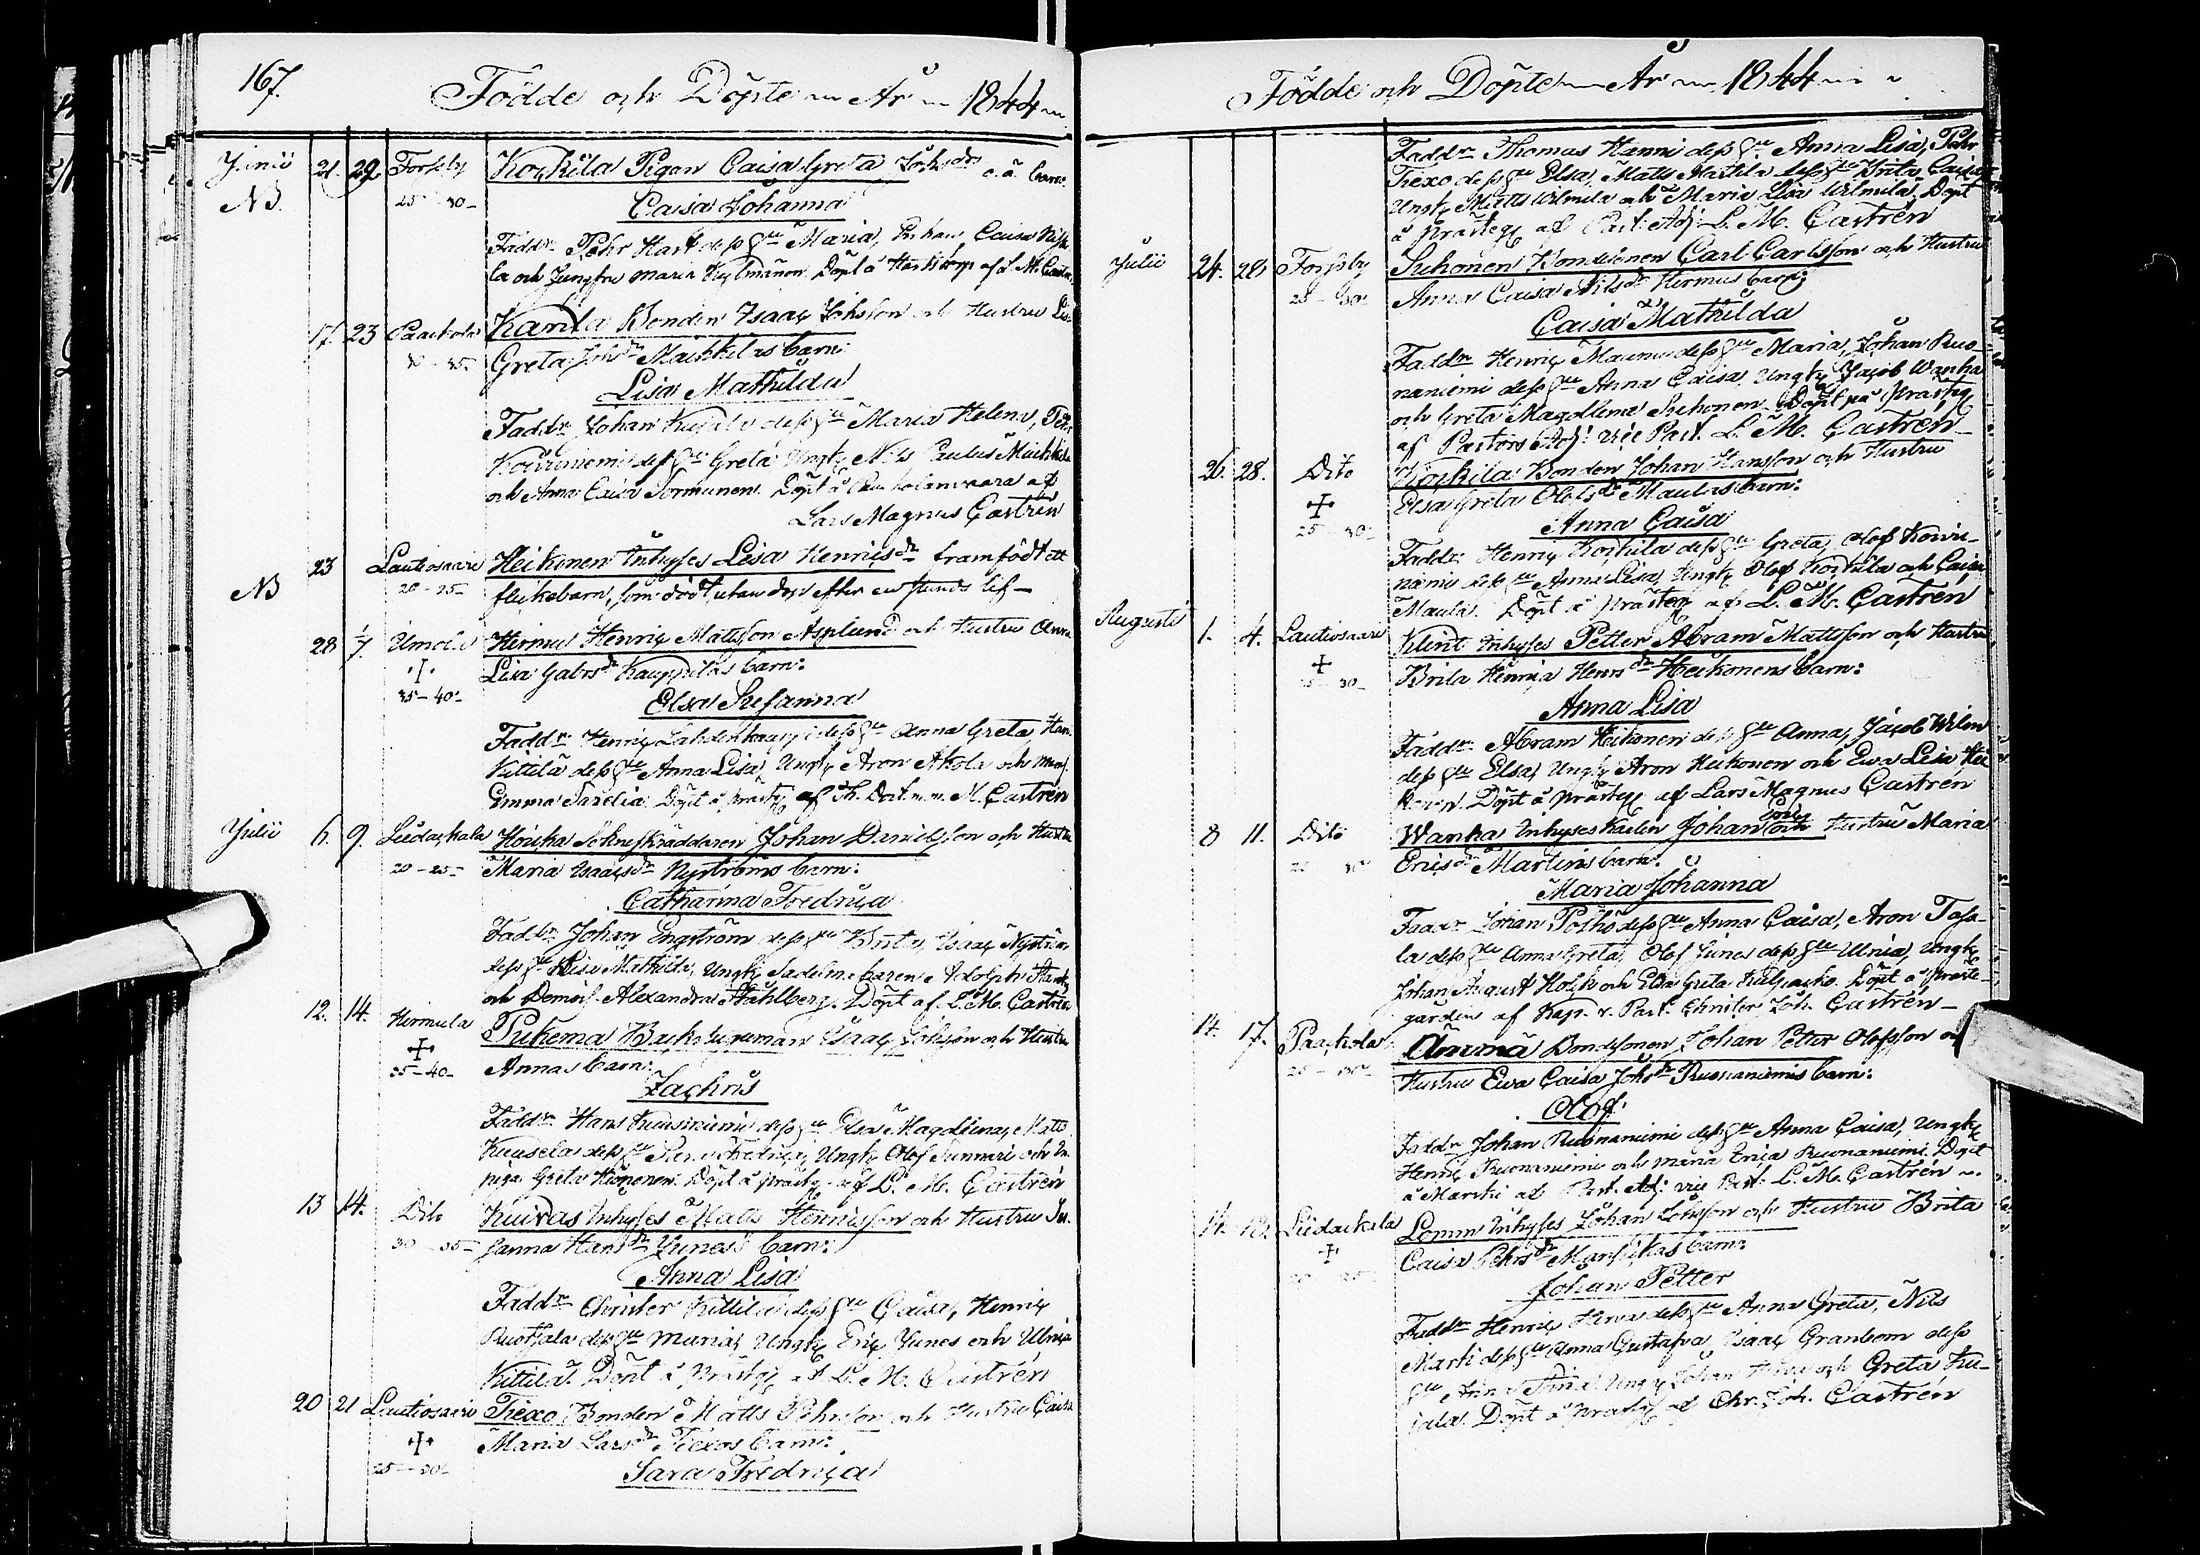 167. Födde och Döpte År 1844
Junii 21. 29. Forsby Koskila Pigan Caisa Greta Johsdrs o. ä. barn:
NB. 25 - 30 - Caisa Johanna
Faddr. Pehr Hast dess Hu Maria, Caisa
la och Jungfru Maria Döpt å af L. M. Castrén
17. 23 Paackola Karila Bonden Isaac Johsson och Hustru Lis.
30 - 35 - Greta Johsdr barn:
Lisa Mathilda
Faddr. Johan dess Hu Maria Helena,
Koiviniemi dess Hu Greta Ungk. Nils
och Anna Caisa Sormunen. Döpt å af
Lars Magnus Castrén
23 Lautiosaari Heikonen Inhyses Lisa Henricsdr framfödt ett
NB 20 - 25 - flickebarn, som dödt utan dop efter en stunds lif -
28 1/7. Hirmu Henric Mattsson Asplund och Hustru Anna
35 - 40 - Lisa Gabrsdr Kauppilas barn:
Elsa Stefanna
Faddr. Henric dess Hu Anna Greta,
Kittilä dess Hu Anna Lisa, Ungk. Aron Akola och
Emma Sarelia. Döpt å prästg. af M. Castrén
Julii 6. 9. Liedackala Houka Sökneskräddaren Johan Davidsson och Hustru
20 - 25 - Maria Isaacsdr Nyströms barn:
Catharina Fredrica
Faddr. Johan Engström dess Hu Brita, Isaac Nyström
dess Hu Lisa Mathilda, Ungk. Sadelmakaren Adolph
och Demois. Alexandra Ståhlberg. Döpt af L. M. Castrén
12. 14. Hirmula Pukema Backstuguman Isaac Johsson och Hustru
35 - 40 - Annas barn:
Zachris
Faddr. Hans Kuusiniemi dess Hu Elsa Magdlena, Matts
Kuusela dess Hu Fredrica, Ungk. Olof Sunnari och
piga Greta. Döpt å prästg. af L. M. Castrén
13 14. Dito Kuivas Inhyses Matts Henricsson och Hustru Su.
30 - 35 - sanna Hansdr Junes barn:
Anna Lisa
Faddr. Christer Kittilä dess Hu Caisa, Henric
Ruottala dess Hu Maria, Ungk. Eric Junes och Ulrica
Kittilä. Döpt å Prästg. af L. M. Castrén
20 21 Lautiosaari Tiexo Bonden Matts Pehrsson och Hustru Caisa
Maria Larsdr Tiexos barn:
25 - 30 - Sara Fredrica
Födde och Döpte År 1844
Faddr. Thomas Hanni dess Hu Anna Lisa, Pehr
Tiexo dess Hu Elsa, Matts Mattila dess Hu Brita Caisa,
Ungk. Matts Wilmila och Maria Lisa Wilmila. Döpt
å prästeg. af Past. Adj. L. M. Castrén
Julii 24. 28 Forssby Suhonen Bondsonen Carl Carlsson och Hustru
25 - 30 - Anna Caisa Nilsdr Hirmus barn:
Caisa Mathilda
Faddr. Henric Maunu dess Hu Maria, Johan Ruo-
naniemi dess Hu Anna Caisa, Ungk. Jacob Wanha
och Greta Magdlena Suhonen. Döpt på Prästg.
af Pastors Adj: vice Past. L. M. Castrén
26. 28. Dito Koskila Bonden Johan Hansson och Hustru
Elsa Greta Olofsdr Maulas barn:
25 - 30 - Anna Caisa
Faddr. Henric Koskila dess Hu Greta, Olof Koivu-
niemi dess Hu Anna Lisa, Ungk. Olof Koskila och Caisa
Maula. Döpt å prästeg. af L. M. Castrén
Augusti 1. 4. Lautiosaari Klint Inhyses Petter Abram Mattsson och Hustru
Brita Henrica Henrsdr Heikonens barn:
Anna Lisa
Faddr. Abram Heikonen dess Hu Anna, Jacob Wilm
dess Hu Elsa, Ungk. Aron Heikonen och Ewa Lisa Hei
konen. Döpt å prästeg. af Lars Magnus Castrén
8 11. Dito Wanha Inhyses Karlen Johan och Hustru Maria
Ericsdr Martins barn:
Maria Johanna
Faddr. Johan dess Hu Anna Caisa, Aron
la dess Hu Anna Greta, Olof Junes dess Hu Ulrica, Ungk.
Johan August och Elsa Greta. Döpt å Präste-
gården af Kap. v. Past. Christer Joh. Castrén -
14. 17. Paackola Ämmä Bondsonen Johan Petter Olofsson o
25 - 30 - Hustru Ewa Caisa Johsdr Ruonaniemis barn:
Olof
Faddr. Johan Ruonaniemi dess Hu Anna Caisa, Ungk.
Henric Ruonaniemi och Maria Erica Ruonaniemi. Döpt
å Marski af Past. Adj: vice Past. L. M. Castrén
14. 18. Liedackala Lomm Inhyses Johan Johsson och Hustru Brita
Caisa Pehrsdr Mansikas barn:
Johan Petter
Faddr. Henric dess Hu Anna Greta, Nils
Marti dess Hu Anna Gustafva, Isaac Granbom dess
Hu Anna, Ungk. Johan och Greta
. Döpt å Prästg. af Chr. Joh. Castrén